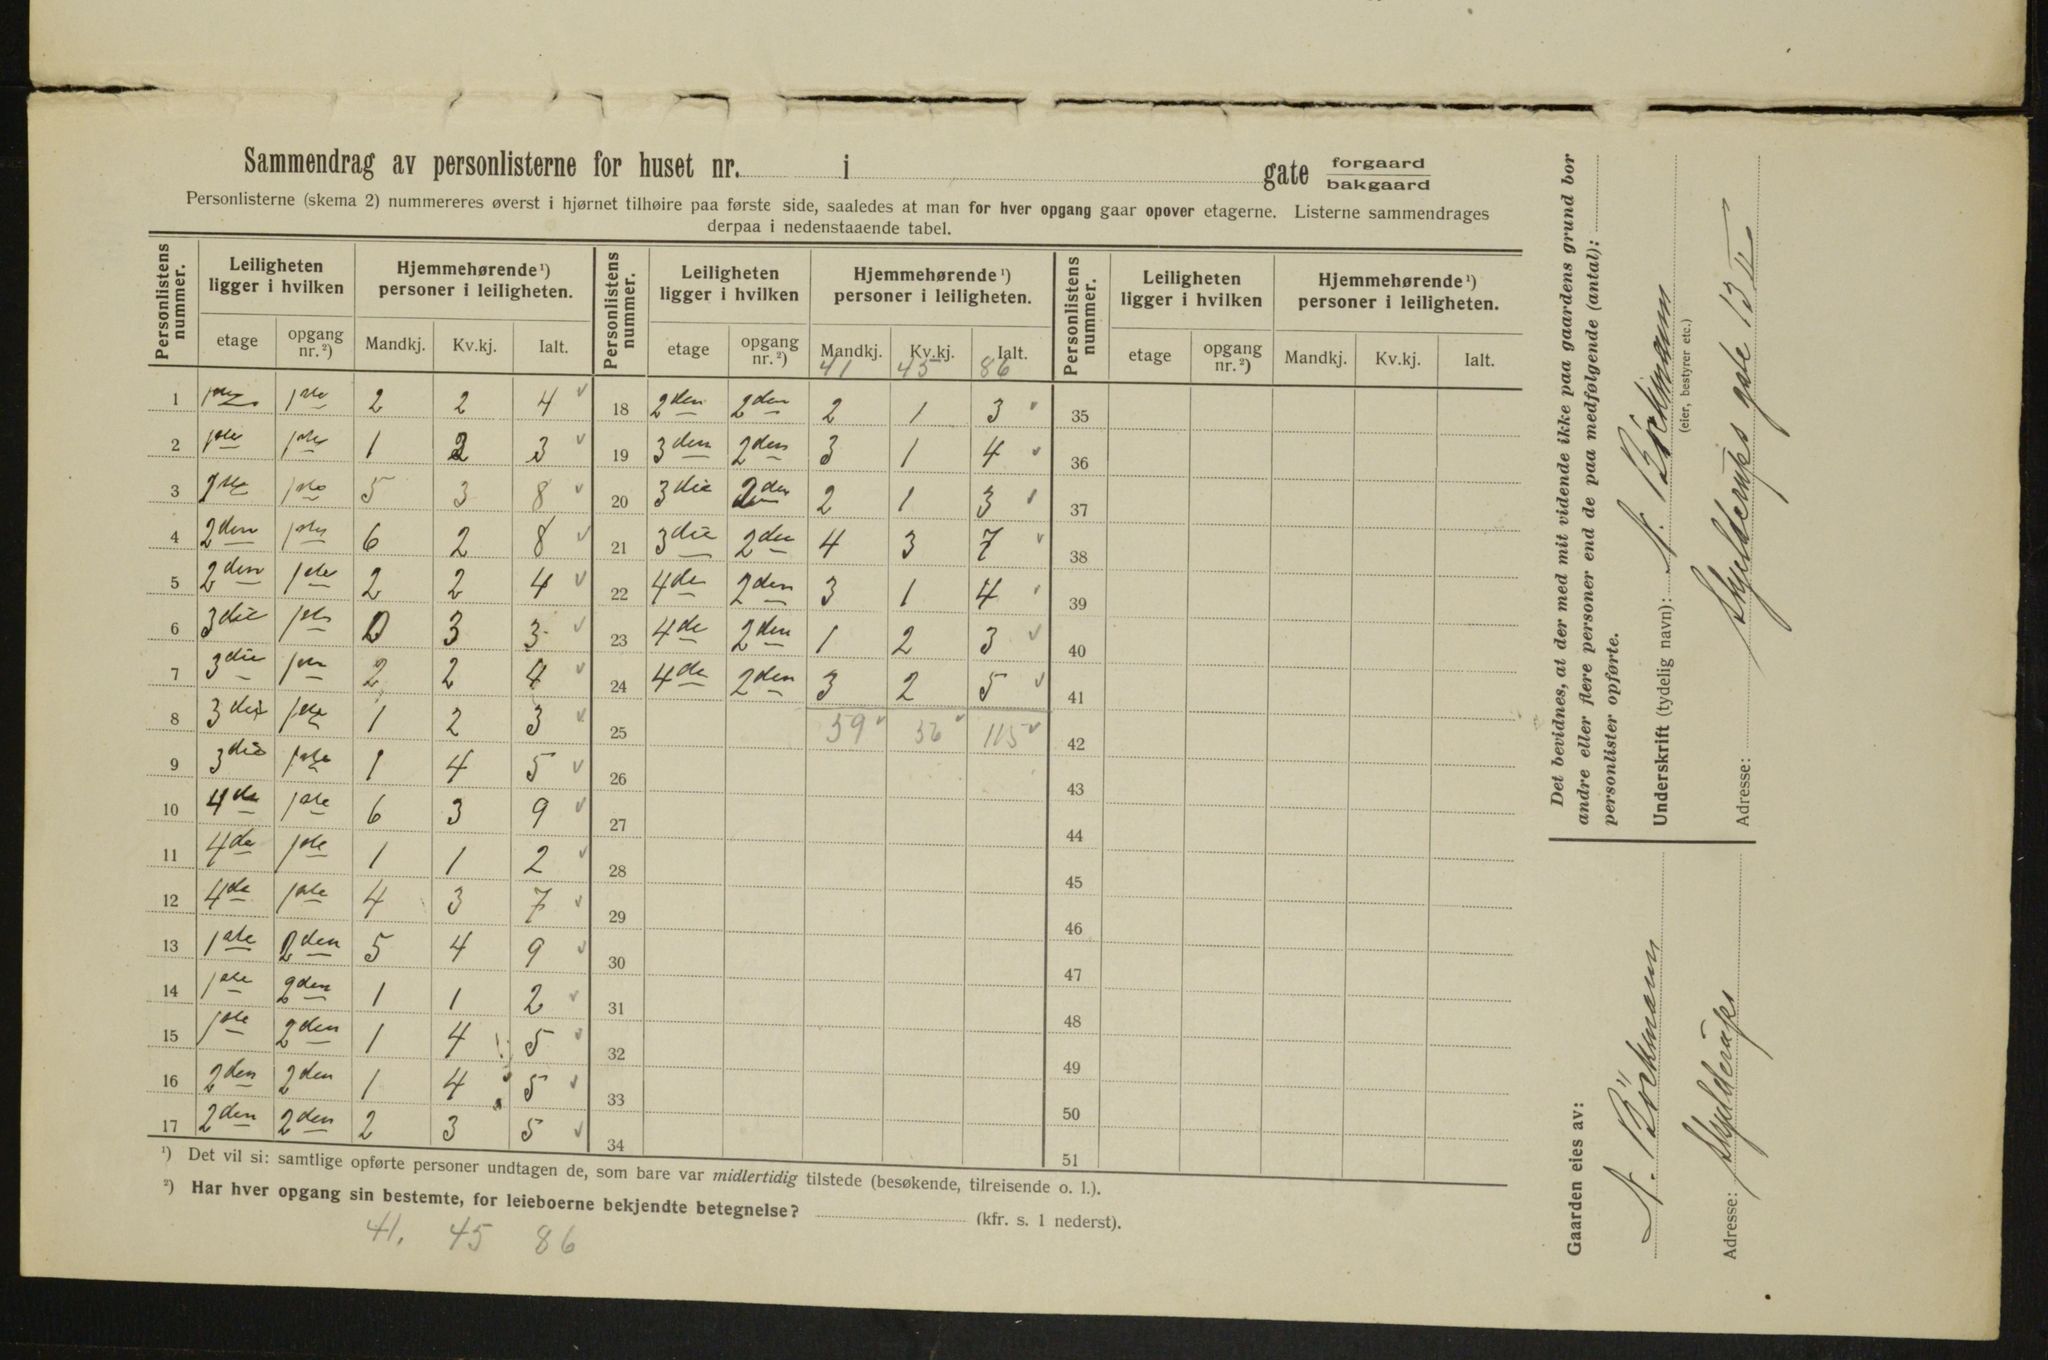 Sammendrag av personlisterne for huset nr. i gate forgaard bakgaard
Personlisterne (skema 2) nummereres øverst i hjørnet tilhøire paa første side, saaledes at man for hver opgang gaar opover etagerne. Listerne sammendrages
derpaa i nedenstaaende tabel.
Personlistens nummer. Leiligheten ligger i hvilken Hjemmehørende ¹) personer i leiligheten. Personlistens nummer. Leiligheten ligger i hvilken Hjemmehørende ¹) personer i leiligheten. Personlistens nummer. Leiligheten ligger i hvilken Hjemmehørende ¹) personer i leiligheten.
etage opgang nr. ²) Mandkj. Kv.kj. Ialt. etage opgang nr. ²) Mandkj. Kv.kj. Ialt. etage opgang nr. ²) Mandkj. Kv.kj. Ialt.
41 45 86
1 1ste 1ste 2 2 4 18 2den 2den 2 1 3 35
2 1ste 1ste 1 2 3 19 3den 2den 3 1 4 36
3 1ste 5 3 8 20 3die 2den 2 1 3 37
4 2den 1ste 6 2 8 21 3die 2den 4 3 7 38
5 2den 1ste 2 2 4 22 4de 2den 3 1 4 39
6 3die 1ste 0 3 3 23 4de 2den 1 2 3 40
7 3die 1ste 2 2 4 24 4de 2den 3 2 5 41
8 3die 1ste 1 2 3 25 59 56 115 42
9 3die 1ste 1 4 5 26 43
10 4de 1ste 6 3 9 27 44
11 4de 1ste 1 1 2 28 45
12 4de 1ste 4 3 7 29 46
13 1ste 2den 5 4 9 30 47
14 1ste 2den 1 1 2 31 48
15 1ste 2den 1 4 5 32 49
16 2den 2den 1 4 5 33 50
17 2den 2den 2 3 5 34 51
¹) Det vil si: samtlige opførte personer undtagen de, som bare var midlertidig tilstede (besøkende, tilreisende o. l.).
²) Har hver opgang sin bestemte, for leieboerne bekjendte betegnelse? (kfr. s. 1 nederst).
41. 45 86
Det bevidnes, at der med mit vidende ikke paa gaardens grund bor
andre eller flere personer end de paa medfølgende (antal):
personlister opførte.
Underskrift (tydelig navn): N. Böckmann
(eier, bestyrer etc.)
Adresse: Skjelderups gate 13 II
Gaarden eies av:
N. Böckmann
Adresse: Skjelderups